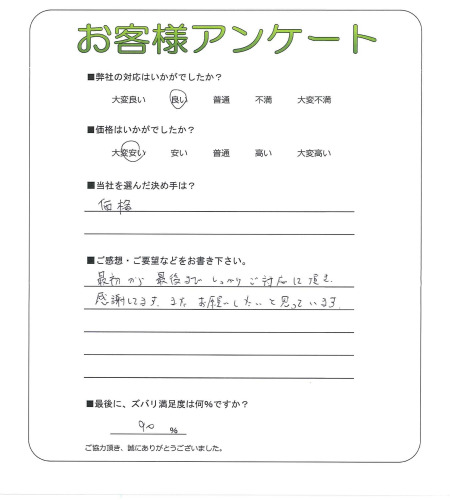 お客様アンケート
■弊社の対応はいかがでしたか？
大変良い 良い 普通 不満 大変不満
■価格はいかがでしたか？
大変安い 安い 普通 高い 大変高い
■当社を選んだ決め手は？
価格
■ご感想・ご要望などをお書き下さい。
最初から最後までしっかりご対応に頂き、
感謝してます。また お願いしたいと思っています。
■最後に、ズバリ満足度は何%ですか？
90 %
ご協力頂き、誠にありがとうございました。